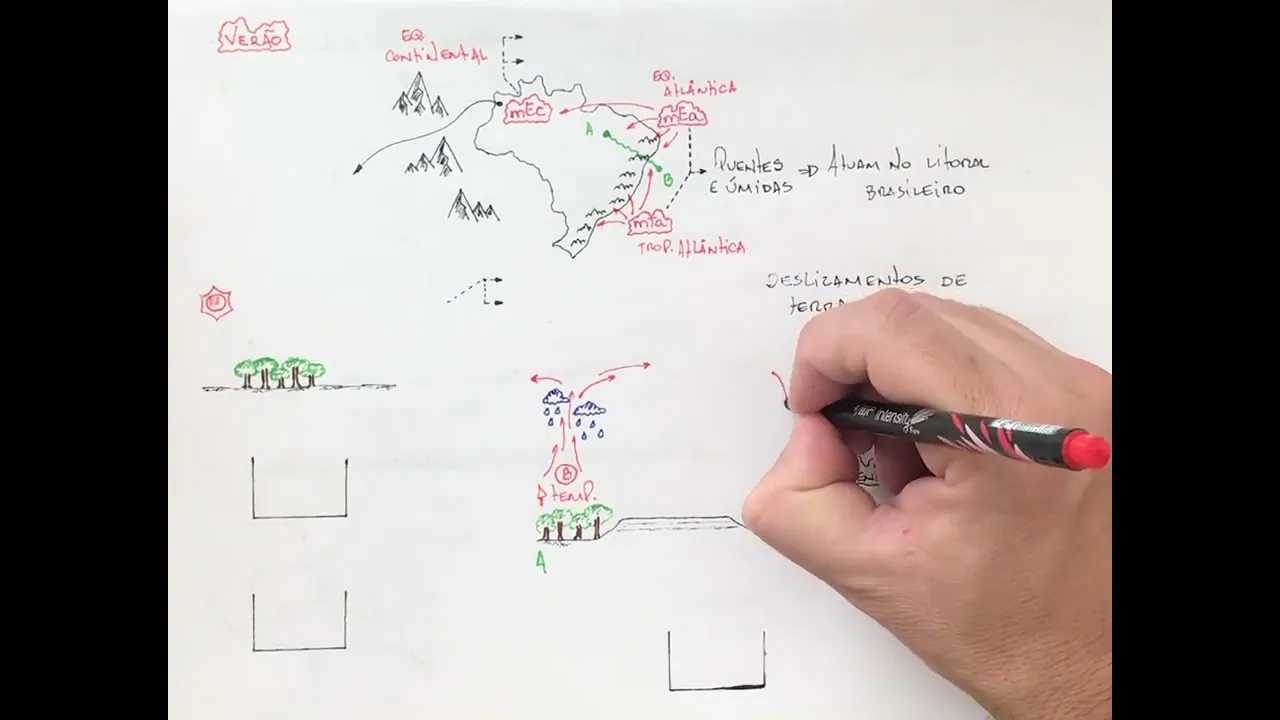 VERÃO
EQ.
CONTINENTAL
mEc
EQ.
ATLÂNTICA
mEa
A
B
QUENTES ⇒ ATUAM NO LITORAL
E ÚMIDAS BRASILEIRO
mTa
TROP. ATLÂNTICA
DESLIZAMENTOS DE
TERRA
B
TEMP.
A
intensity